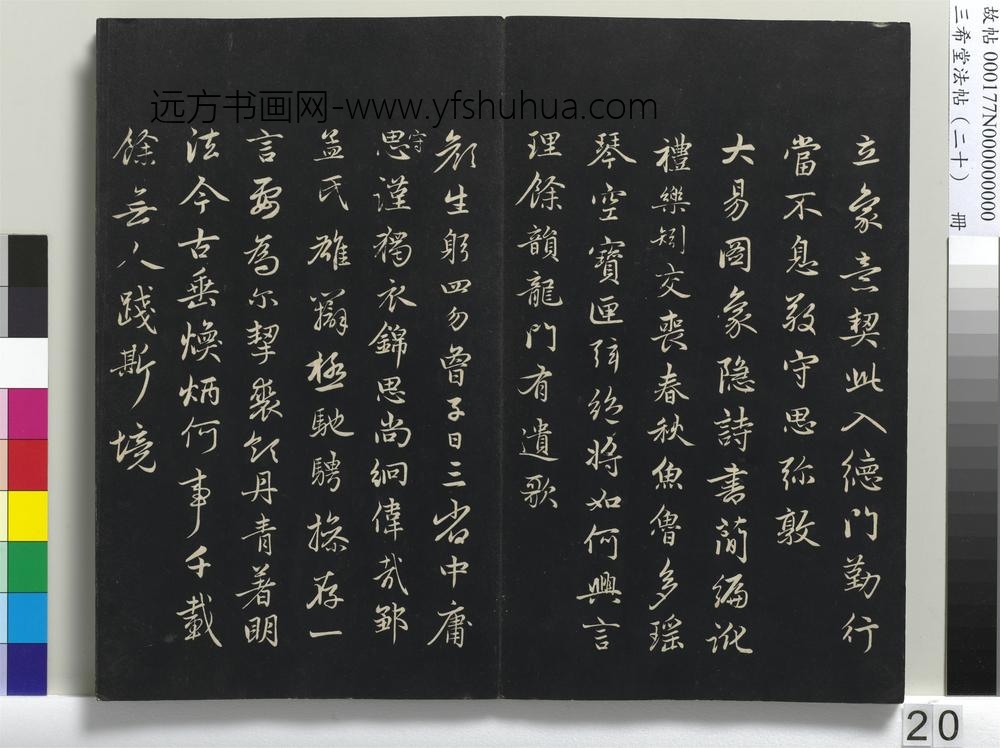 立象意契此入德門勤行
當不息敬守思弥敦
大易圖象隐詩書簡编訛
禮樂矧交喪春秋魚魯多瑶
琴空寶匣弦絶將如何興言
理餘韻龍門有遺歌
顏生躬四勿曾子日三省中庸
思守謹獨衣錦思尚絅偉哉鄒
孟氏雄辯極馳騁操存一
言要為尔挈裘領丹青著明
法今古垂煥炳何事千載
餘無人踐斯境
远方书画网-www.yfshuhua.com
故帖 000177N000000000
三希堂法帖(二十) 册
20